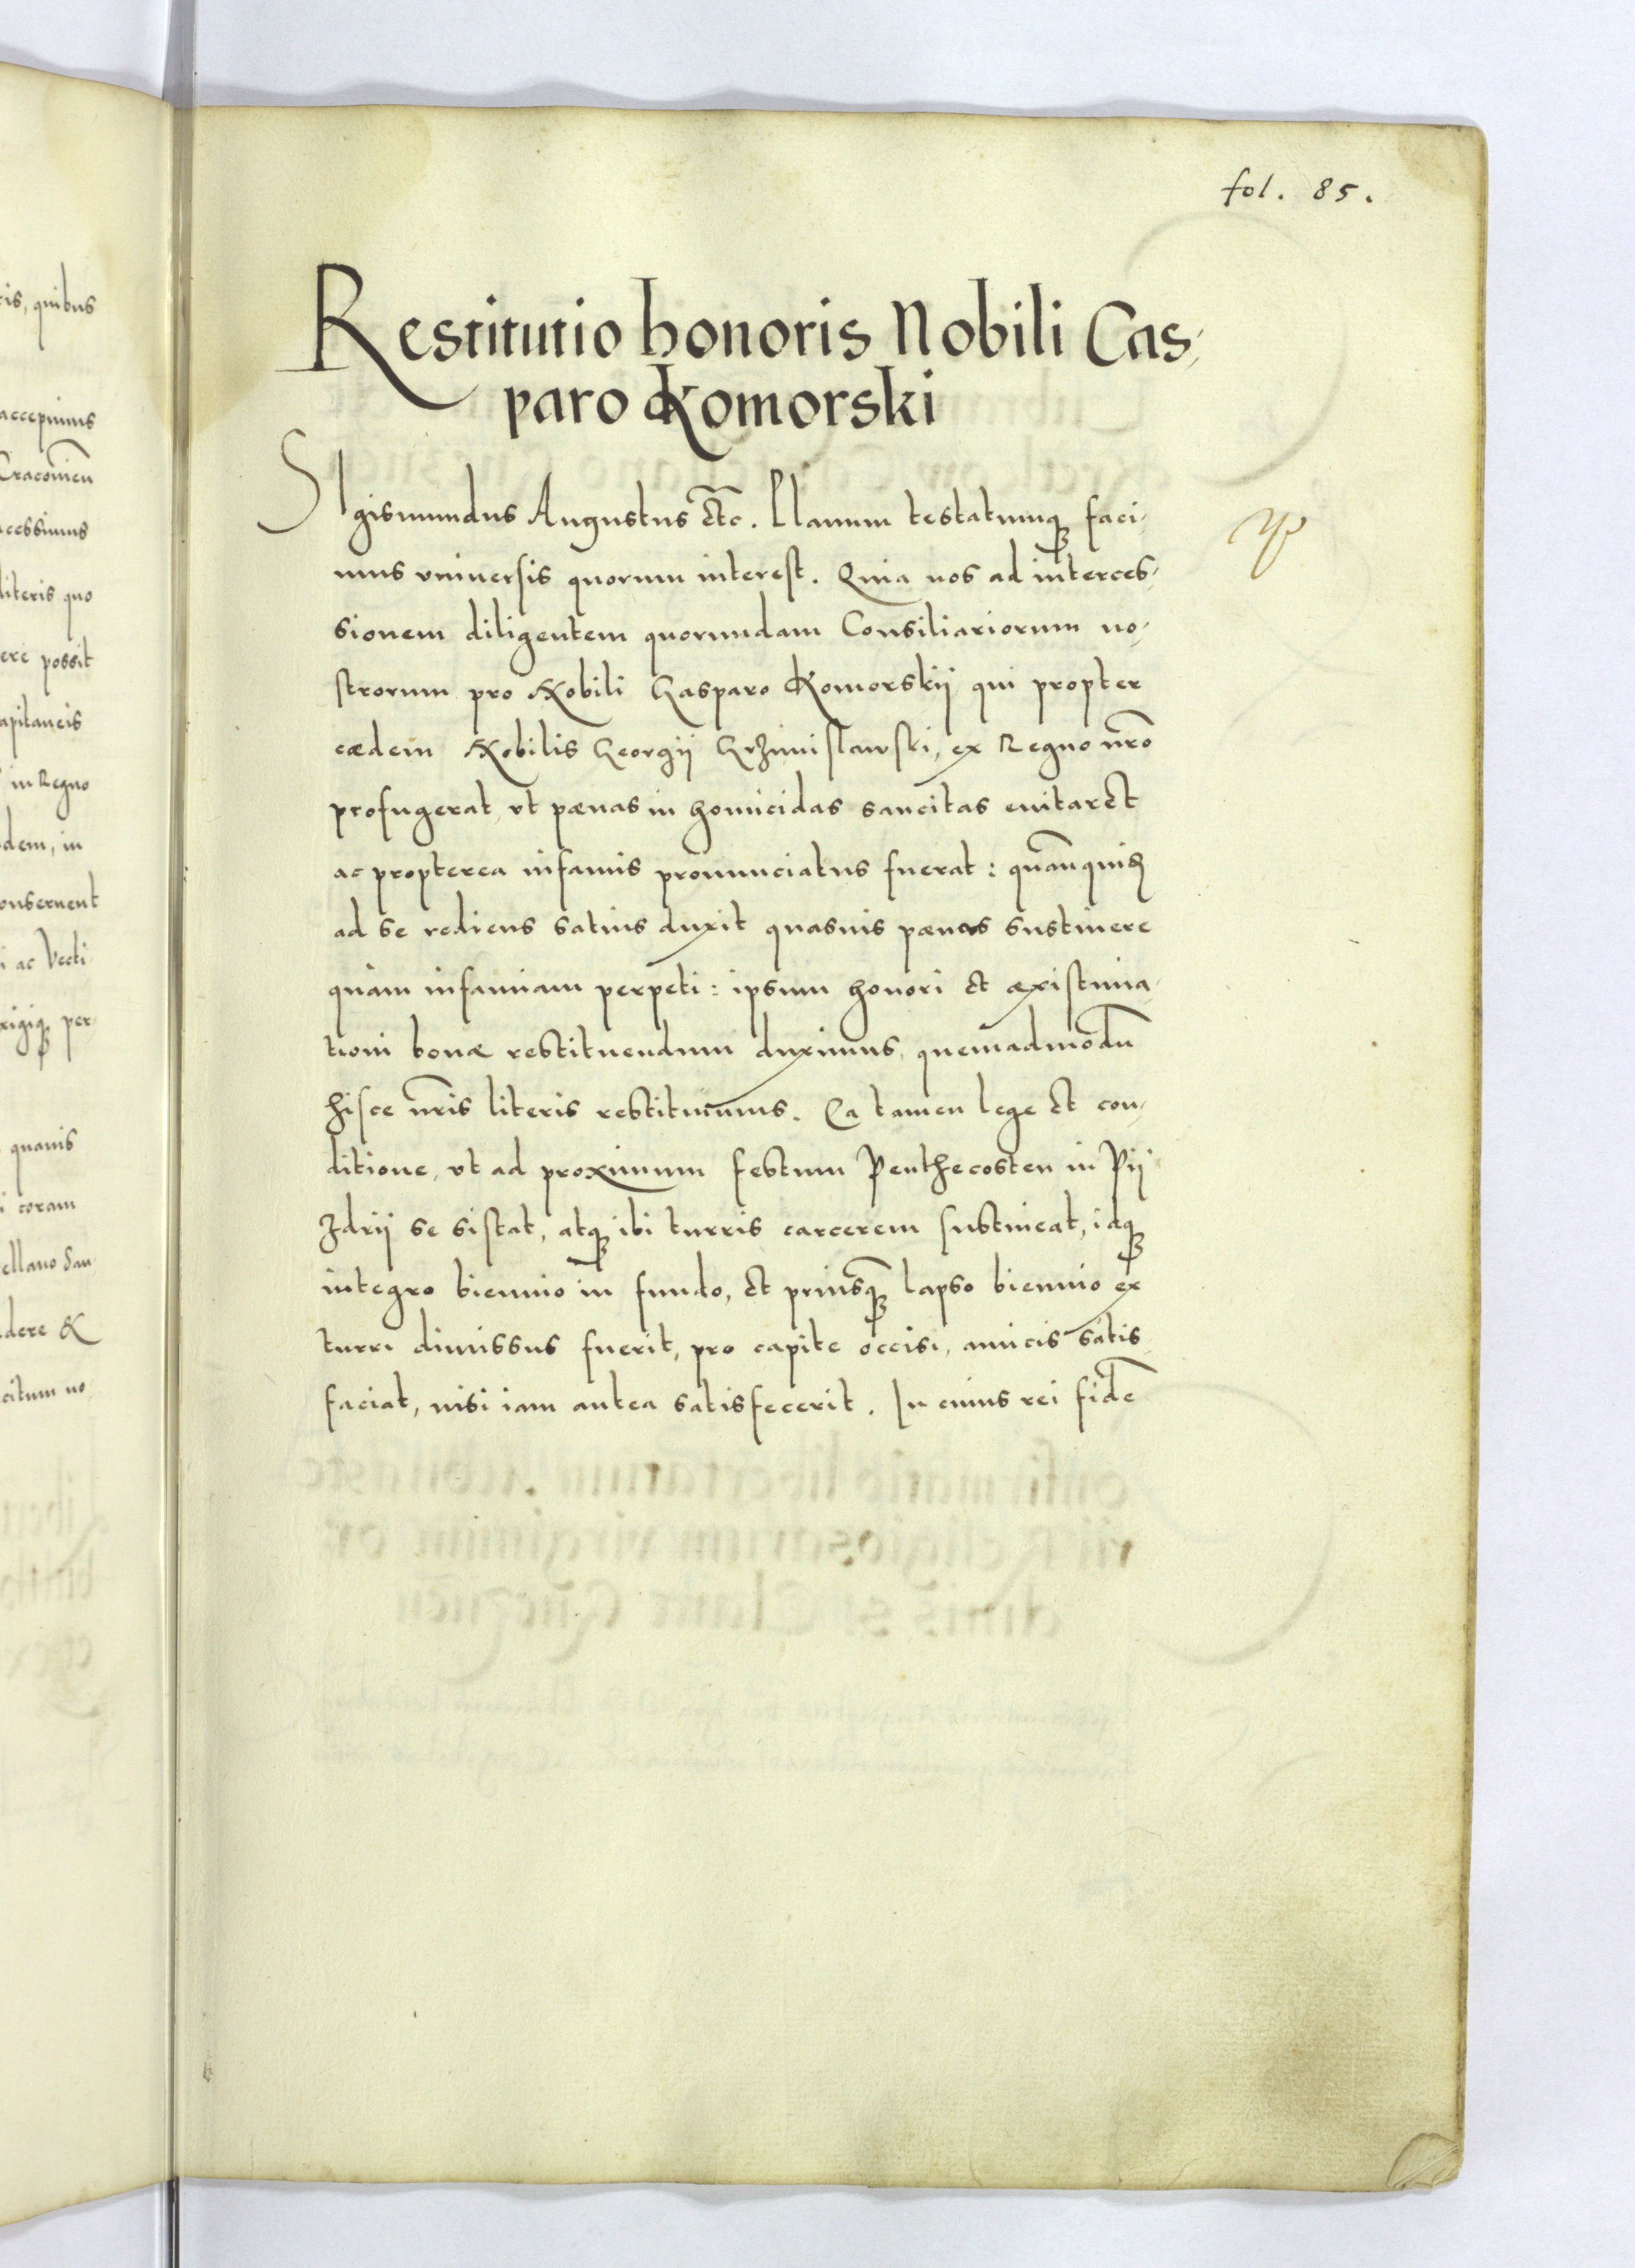 fol. 85.
Restitutio honoris Nobili Cas,
paro Komorski
SIgismundus Augustus etc. Planum testatumq faci,
mus vniuersis quorum interest. Quia nos ad interces,
sionem diligentem quorumdam Consiliariorum no,
strorum pro Nobili Gasparo Komorskij qui propter
cædem Nobilis Georgij Grzimislawski, ex Regno nro
profugerat, vt pænas in homicidas sancitas euitaret
ac propterea infamis pronunciatus fuerat:
ad se rediens satius duxit quasuis pænas sustinere
quàm infamiam perpeti: ipsum honori et æxistima,
tioni bonæ restituendum duximus, quemadmodu
hisce nris literis restituimus. Ea tamen lege et con,
ditione, vt ad proximum festum Penthecosten in Pij
Zdrij se sistat, atq ibi turris carcerem sustineat, idq
integro biennio in fundo, et priusq lapso biennio ex
turri dimissus fuerit, pro capite occisi, amicis satis
faciat, nisi iam antea satisfecerit. In cuius rei fide
is, quibus
accepimus
Cracouien
cessimus
literis quo
ere possit
apitaneis
in Regno
dem, in
onseruent
i ac Vecti
per,
quauis
i coram
ellano San
dere &
citum no